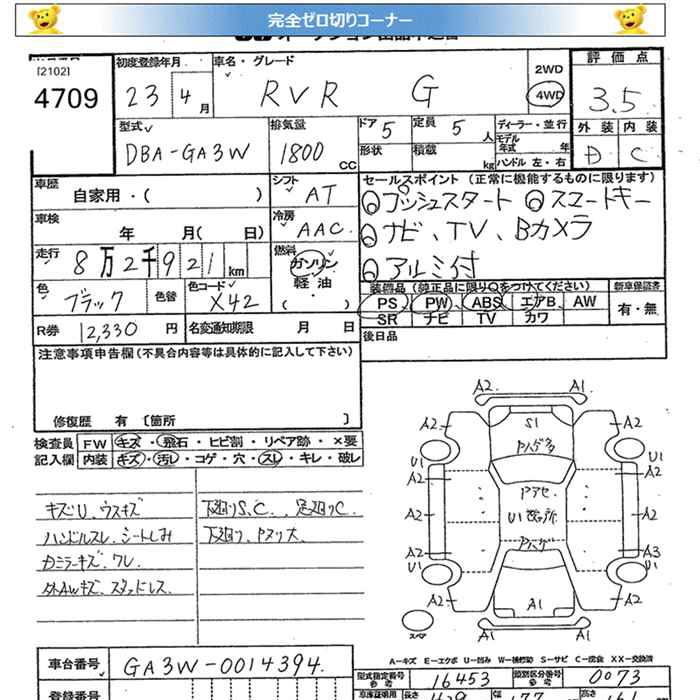 完全ゼロ切りコーナー
[2102]
4709
初度登録年月 車名・グレード 評価点
23 4月 RVR G 2WD 4WD 3.5
型式 排気量 ドア 5 定員 5人 ディーラー・並行 外装 内装
DBA-GA3W 1800cc 形状 積載 kg モデル年式 年 ハンドル 左・右 D C
車歴 自家用・( ) シフト AT
セールスポイント (正常に機能するものに限ります)
車検 年 月( 日) 冷房 AAC
プッシュスタート スマートキー
ナビ、TV、Bカメラ
アルミ付
走行 8万2千921km 燃料 ガソリン 軽油
色 ブラック 色替 色コード X42
装備品(純正品に限り○をつけてください) 新車保証書
PS PW ABS エアB AW 有・無
SR ナビ TV カワ
R券 12,330円 名変通知期限 月 日
後日品
注意事項申告欄(不具合内容等は具体的に記入して下さい)
修復歴 有〔箇所 〕
検査員 FW キズ・飛石・ヒビ割・リペア跡・×要
記入欄 内装 キズ・汚レ・コゲ・穴・スレ・キレ・破レ
キズU、ウスキズ 下廻りS、C、足廻りC
ハンドルスレ、シートしみ 下廻り、Pヌリ大
カミラーキズ、ワレ
外AWキズ、スタッドレス
A2 A1
A2 S1 A2
Pハゲ多
U1 U1
A2 A2
Pアセ
A2 U1 A2
Pハゲ
A2 A3
U1 U1
A2 A1 A2
スペア
A2 A1
A-キズ E-エクボ U-凹み W-補修跡 S-サビ C-腐食 XX-交換済
車台番号 GA3W-0014394
型式指定番号 参考 16453 類別区分番号 参考 0073
登録番号 長さ 幅 高さ